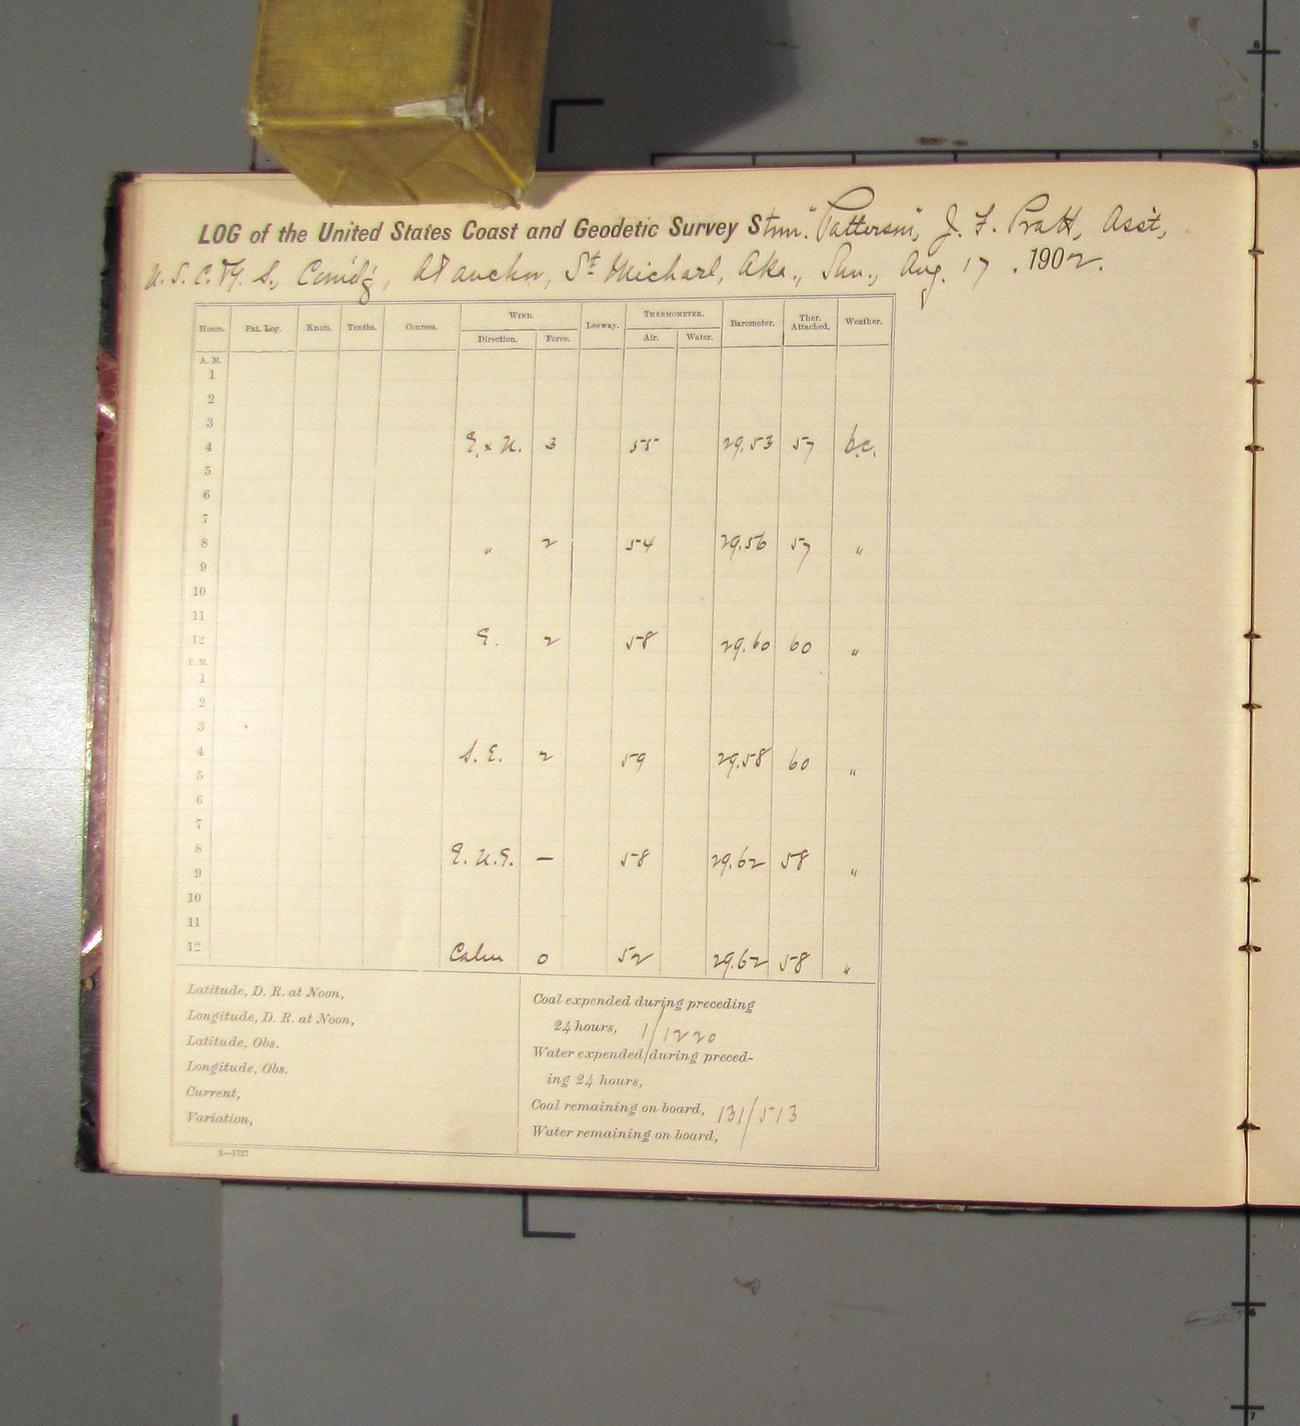 LOG of the United States Coast and Geodetic Survey Stmr. "Patterson", J. F. Pratt, Asst,
U. S. C. & G. S., Comd'g, At anchor, St Michael, Aka., Sun., Aug. 17, 1902.
Hours. Pat. Log. Knots. Tenths. Courses. WIND. Leeway. THERMOMETER. Barometer. Ther. Attached. Weather.
Direction. Force. Air. Water.
A. M.
1
2
3
4 E. x N. 3 55 29.53 57 b.c.
5
6
7
8 " 2 54 29.56 57 "
9
10
11
12 E. 2 58 29.60 60 "
P. M.
1
2
3
4 S. E. 2 59 29.58 60 "
5
6
7
8 E. N. E. — 58 29.62 58 "
9
10
11
12 Calm 0 52 29.62 58 "
Latitude, D. R. at Noon,
Longitude, D. R. at Noon,
Latitude, Obs.
Longitude, Obs.
Current,
Variation,
Coal expended during preceding
24 hours, 1/1220
Water expended during preced-
ing 24 hours,
Coal remaining on board, 131/513
Water remaining on board,
2—1727
5
5
6
7